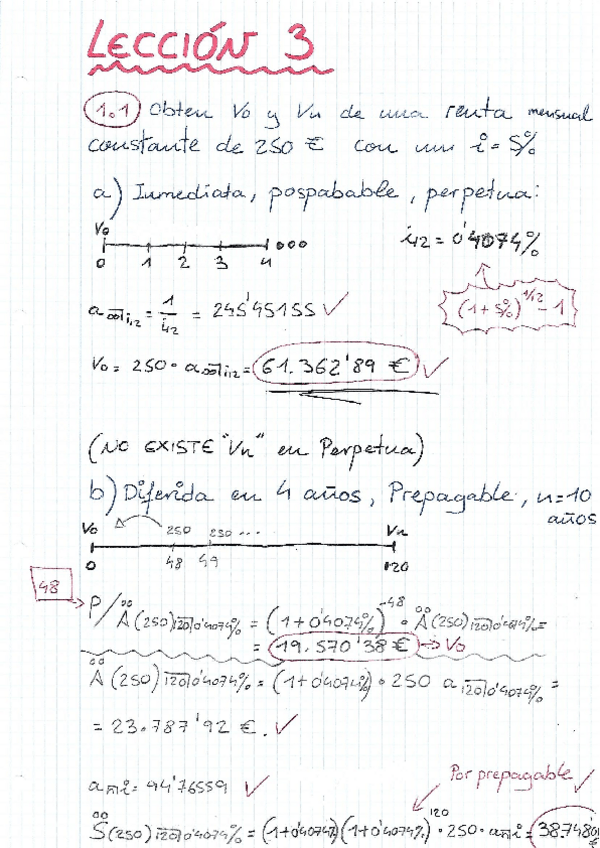 LECCIÓN 3
1.1 Obten Vo y Vn de una renta mensual
constante de 250 € con un i = 5%
a) Inmediata, pospabable, perpetua:
Vo
0 1 2 3 4
i12 = 0'4074%
(1+5%)^1/12 - 1
a∞|i12 = 1/i12 = 245'45155 ✓
Vo = 250 · a∞|i12 = 61.362'89 € ✓
(NO EXISTE "Vn" en Perpetua)
b) Diferida en 4 años, Prepagable, n=10
años
Vo 250 250 ... Vn
0 48 49 120
48
P/Ä(250)120|0'4074% = (1+0'4074%)^-48 · Ä(250)120|0'4074% =
= 19.570'38 € → Vo
Ä(250)120|0'4074% = (1+0'4074%) · 250 a120|0'4074% =
= 23.787'92 €. ✓
an|i = 94'76559 ✓
Por prepagable ✓
S̈(250)120|0'4074% = (1+0'4074%)(1+0'4074%)^120 · 250 · an|i = 38.748'